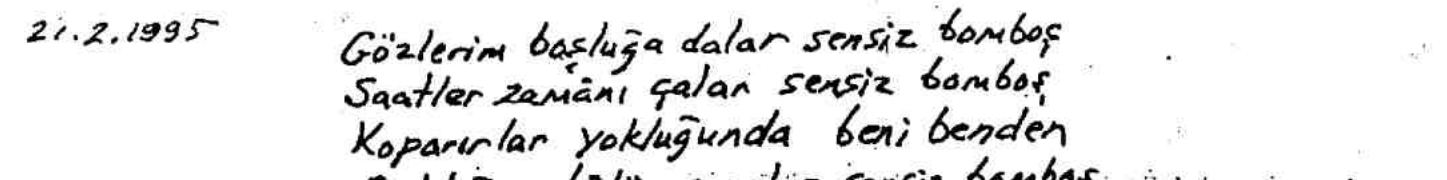 21.2.1995
Gözlerim boşluğa dalar sensiz bomboş
Saatler zamânı çalar sensiz bomboş
Koparırlar yokluğunda beni benden
sensiz bomboş